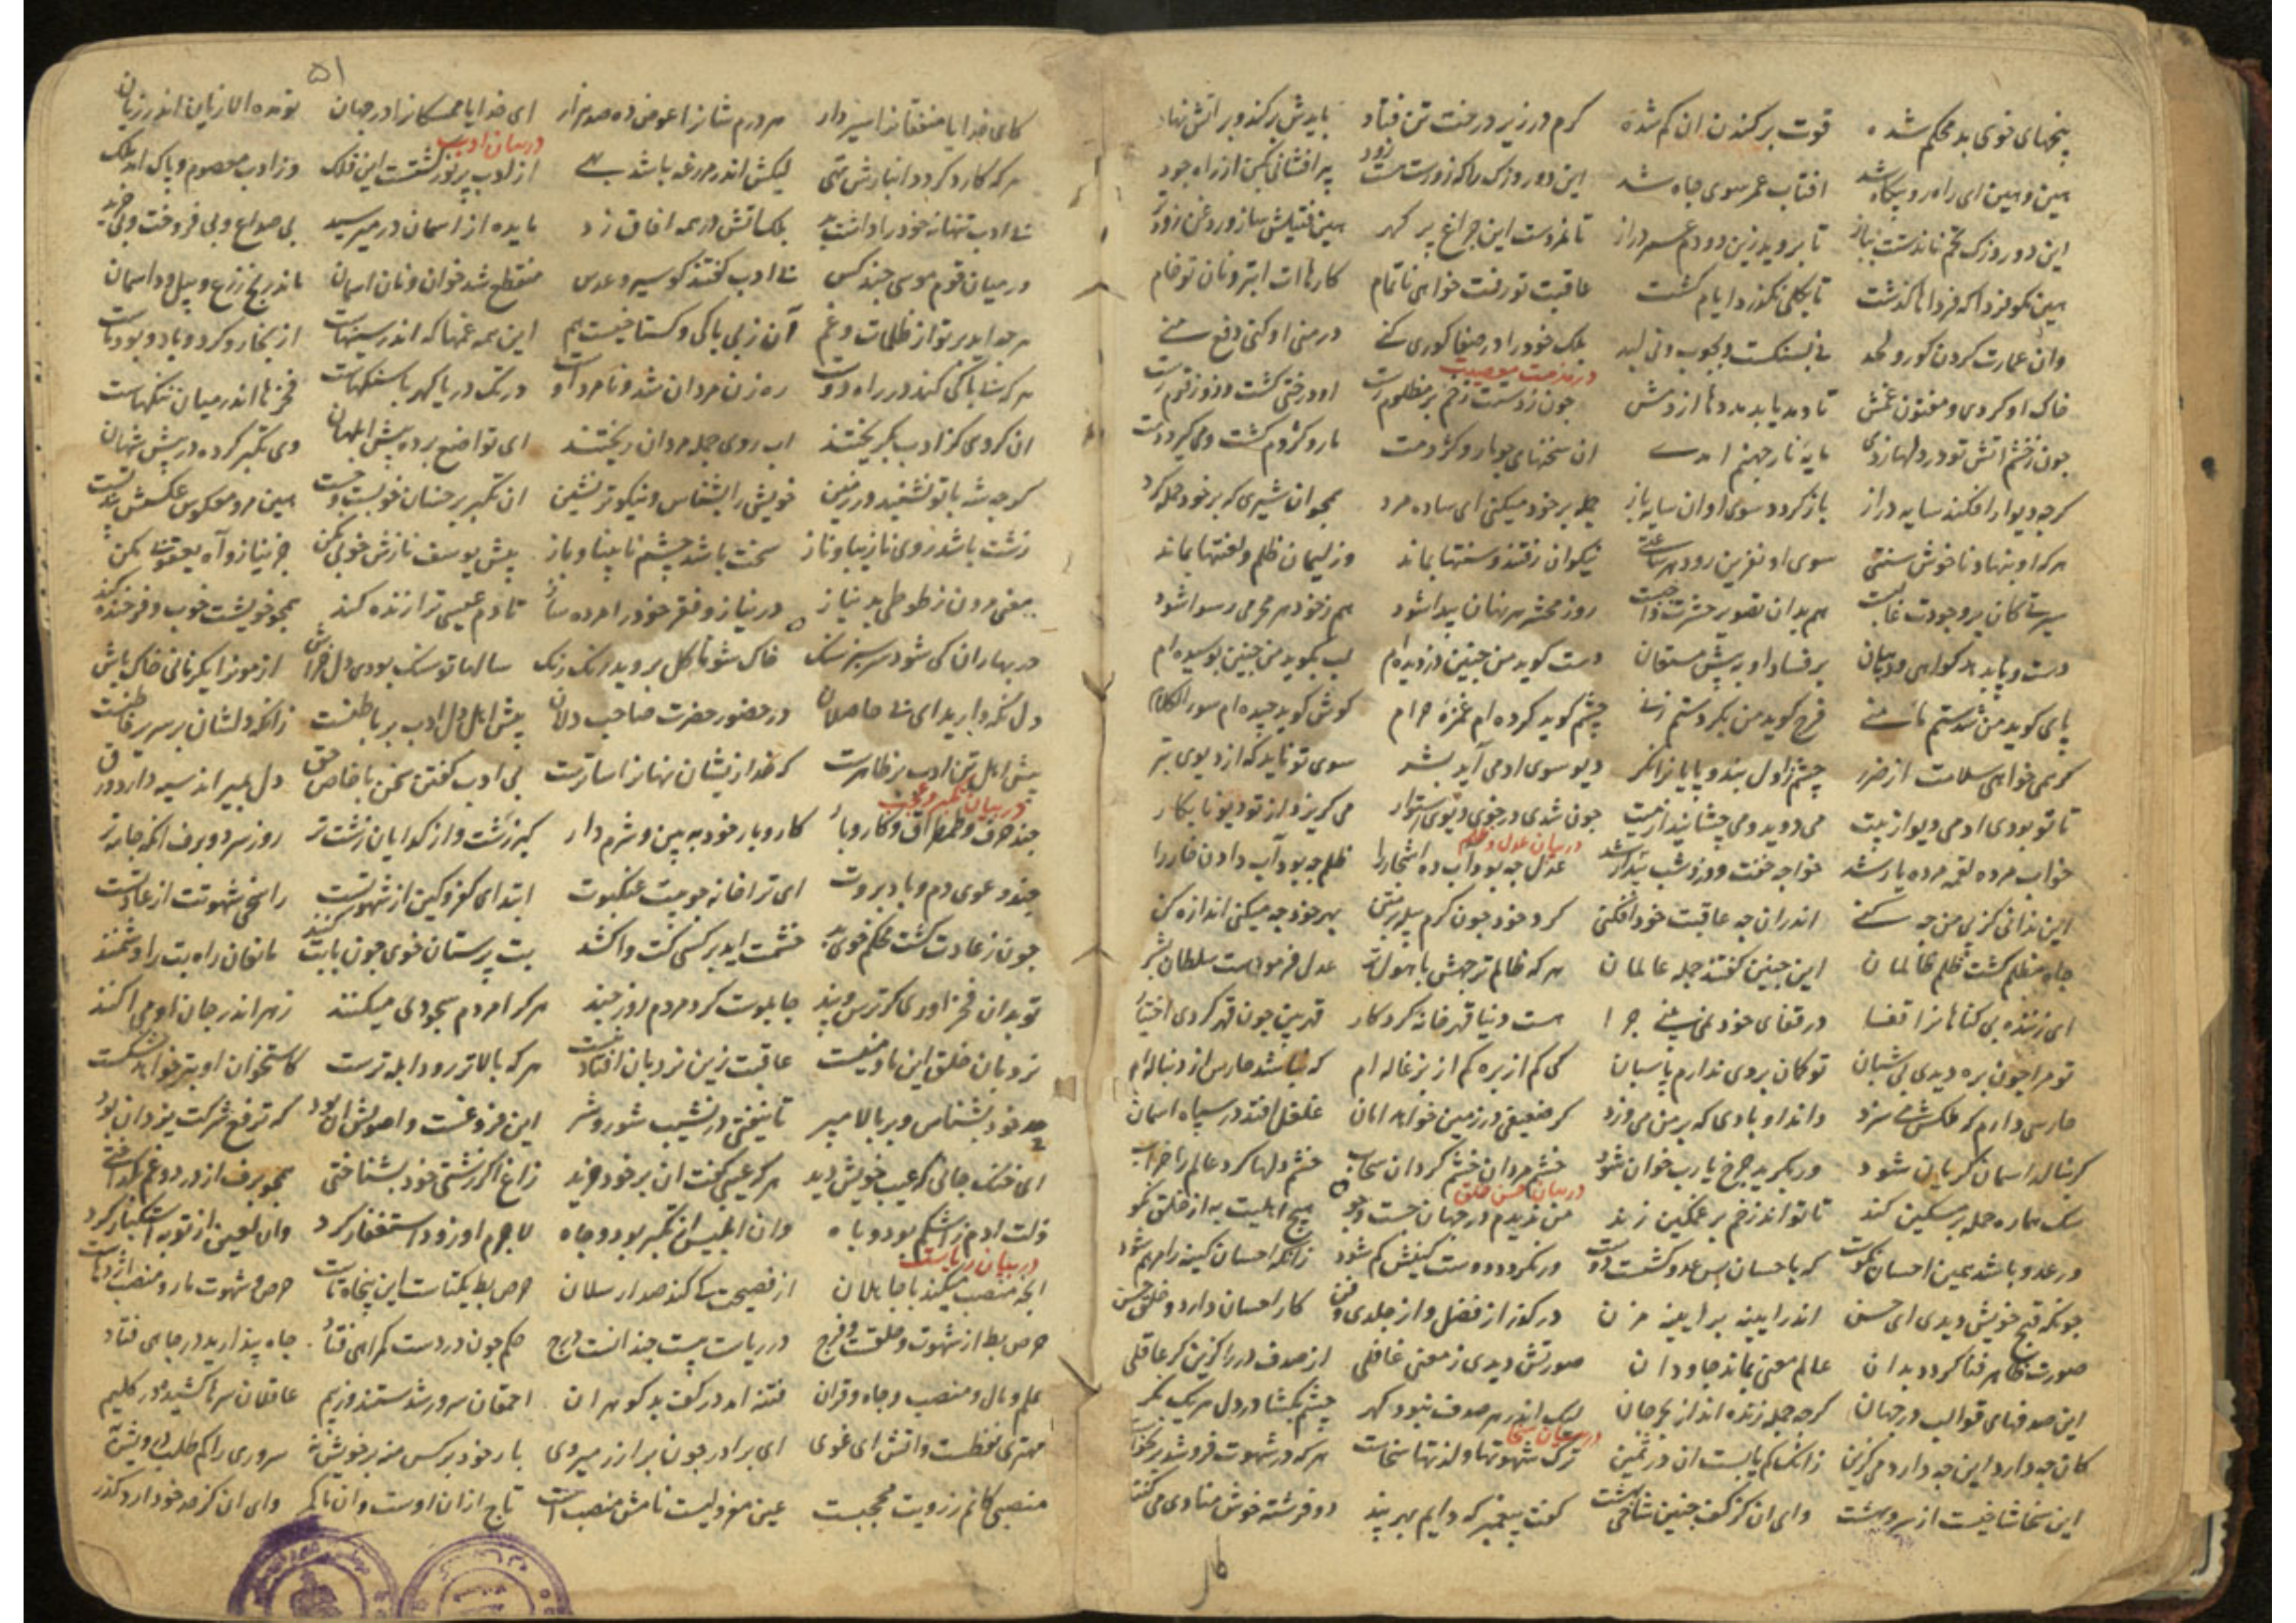 بیخهای خوی بد محکم شده    قوت بر کندن ان کم شده    کرم در زیر درخت تن فتاد    بایدش بر کند و بر اتش نهاد
هین و هین ای راه رو بیگاه شد    افتاب عمر سوی چاه شد    این دو روزک را که زورت هست زود    پر افشانی بکن از راه جود
این دو روزک تخم ماندست بباز    تا بروید زین دو دم عمر دراز    تا نمردست این چراغ پر گهر    هین فتیلش ساز و روغن زودتر
هین مگو فردا که فرداها گذشت    تا بکلی نگذرد ایام کشت    عاقبت تو رفت خواهی ناتمام    کارهاات ابتر و نان تو خام
وان عمارت کردن کور و لحد    نی بسنکست و بچوب و نی لبد    بلک خود را در صفا کوری کنی    در منی او کنی دفع منی
در مذمت
خاک او کردی و مدفون غمش    تا دمد یابد مددها از دمش    چون ز دستت زخم بر مظلوم رست    او درختی کشت و زو زقوم رست
چون زخشم اتش تو در دلها زدی    مایه نار جهنم امدی    ان سخنهای چو مار و کژدمت    مار و کژدم کشت و می کیرد دمت
کرچه دیوار افکند سایه دراز    باز کردد سوی او ان سایه باز    حمله بر خود میکنی ای ساده مرد    همچو ان شیری که بر خود حمله کرد
هر که او بنهاد ناخوش سنتی    سوی او نفرین رود هر ساعتی    نیکوان رفتند و سنتها بماند    وز لئیمان ظلم و لعنتها بماند
سیرتی کان بر وجودت غالبست    هم بدان تصویر حشرت واجبست    روز محشر هر نهان پیدا شود    هم ز خود هر مجرمی رسوا شود
دست و پا بدهد کواهی و بیان    بر فساد او به پیش مستعان    دست کوید من چنین دزدیده ام    لب بکوید من چنین بوسیده ام
پای کوید من شدستم تا منی    فرج کوید من بکردستم زنی    چشم کوید کرده ام غمزه حرام    کوش کوید چیده ام سوء الکلام
کر همی خواهی سلامت از ضرر    چشم ز اول بند و پایانرا نکر    دیو سوی ادمی آید بشر    سوی تو ناید که از دیوی بتر
تا تو بودی ادمی دیو از پیت    می دوید و می چشانید از میت    چون شدی در خوی دیوی استوار    می کریزد از تو دیو نابکار
در بیان عدل و ظلم
خواب مرده لقمه مرده یار شد    خواجه خفت و دزد شب بیدار شد    عدل چه بود آب ده اشجار را    ظلم چه بود آب دادن خار را
این ندانی کز پی من چه کنی    اندران چه عاقبت خود افکنی    کرد خود چون کرم پیله بر متن    بهر خود چه میکنی اندازه کن
چاه مظلم کشت ظلم ظالمان    این چنین کفتند جمله عالمان    هر که ظالم تر چهش با هول تر    عدل فرمودست سلطان بتر
ای زننده بی کناهانرا قفا    در قفای خود نمی بینی جزا    هست دنیا قهر خانه کردکار    قهر بین چون قهر کردی اختیار
تو مرا چون بره دیدی بی شبان    تو کمان بردی ندارم پاسبان    کی کم از بره کم از بزغاله ام    که نباشد حارس از دنباله ام
حارسی دارم که ملکش می سزد    داند او بادی که بر من می وزد    کر ضعیفی در زمین خواهد امان    غلغل افتد در سپاه اسمان
کر بنالد اسمان کریان شود    ور بکرید چرخ یارب خوان شود    خشم مردان خشک کرداند سحاب    خشم دلها کرد عالم را خراب
در بیان حسن خلق
سک هماره حمله بر مسکین کند    تا تواند زخم بر غمکین زند    من ندیدم در جهان جست و جو    هیچ اهلیت به از خلق نکو
ور عدو باشد همین احسان نکوست    که باحسان بس عدو کشتست دوست    ور نکردد دوست کینش کم شود    زانکه احسان کینه را مرهم شود
چونکه قبح خویش دیدی ای حسن    اندر ایینه بر ایینه مزن    در کذر از فضل و از جلدی و فن    کار احسان دارد و خلق حسن
صورت ظاهر فنا کردد بدان    عالم معنی بماند جاودان    صورتش دیدی ز معنی غافلی    از صدف در را کزین کر عاقلی
این صدفهای قوالب در جهان    کرچه جمله زنده اند از بحر جان    لیک اندر هر صدف نبود کهر    چشم بکشا در دل هر یک نکر
در بیان سخا
کان چه دارد این چه دارد می کزین    زانک کم یابست ان در ثمین    ترک شهوتها و لذتها سخاست    هر که در شهوت فروشد بر نخاست
این سخا شاخیست از سرو بهشت    وای ان کز کف چنین شاخی بهشت    کفت پیغمبر که دایم بهر پند    دو فرشته خوش منادی می کنند
کای
۵۱
کای خدایا منفقانرا سیر دار    هر درم شانرا عوض ده صد هزار    ای خدایا ممسکانرا در جهان    تو مده الا زیان اندر زیان
در بیان ادب
هر که کارد کردد انبارش تهی    لیکش اندر مزرعه باشد بهی    از ادب پر نور کشتست این فلک    وز ادب معصوم و پاک امد ملک
بی ادب تنها نه خود را داشت بد    بلک اتش در همه افاق زد    مایده از اسمان در میرسید    بی صداع و بی فروخت و بی خرید
در میان قوم موسی چند کس    بی ادب کفتند کو سیر و عدس    منقطع شد خوان و نان اسمان    ماند رنج زرع و بیل و داسمان
هر چه اید بر تو از ظلمات و غم    آن ز بی باکی و کستاخیست هم    این همه غمها که اندر سینهاست    از بخار و کرد و باد و بود ماست
هر که بی باکی کند در راه دوست    ره زن مردان شد و نامرد اوست    در تک دریا کهر با سنکهاست    فخرها اندر میان ننکهاست
ان کروهی کز ادب بکریختند    اب روی جمله مردان ریختند    ای تواضع برده پیش ابلهان    وی تکبر کرده در پیش شهان
کر چه شه با تو نشیند در زمین    خویش را بشناس و نیکوتر نشین    ان تکبر بر خسان خوبست و چست    هین مرو معکوس عکسش بند تست
زشت باشد روی نازیبا و ناز    سخت باشد چشم نابینا و باز    پیش یوسف نازش خوبی مکن    جز نیاز و آه یعقوبی مکن
معنی مردن ز طوطی بد نیاز    در نیاز و فقر خود را مرده ساز    تا دم عیسی ترا زنده کند    همچو خویشت خوب و فرخنده کند
در بهاران کی شود سرسبز سنک    خاک شو تا کل بروید رنک رنک    سالها تو سنک بودی دل خراش    ازمون را یک زمانی خاک باش
دل نکه دارید ای بی حاصلان    در حضور حضرت صاحب دلان    پیش اهل دل ادب بر باطنست    زانکه دلشان بر سرایر فاطنست
پیش اهل تن ادب بر ظاهرست    که خدا زیشان نهانرا ساترست    بی ادب کفتن سخن با خاص حق    دل بمیراند سیه دارد ورق
در بیان کبر و عجب
چند حرف و طمطراق و کار و بار    کار و بار خود ببین و شرم دار    کبر زشت و از کدایان زشت تر    روز سرد و برف انکه جامه تر
چند دعوی دم و باد بروت    ای ترا خانه چو بیت عنکبوت    ابتدای کفر و کین از شهوتست    راسخی شهوتت از عادتست
چون ز عادت کشت محکم خوی بد    خشمت اید بر کسی کت واکشد    بت پرستان خوی چون با بت کنند    مانعان راه بت را دشمنند
تو بدان فخر اوری کز ترس و بند    چاپلوست کرد مردم روز چند    هر کرا مردم سجودی میکنند    زهر اندر جان او می اکنند
نردبان خلق این ما و منیست    عاقبت زین نردبان افتادنیست    هر که بالاتر رود ابله ترست    کاستخوان او بتر خواهد شکست
حد خود بشناس و بر بالا مپر    تا نیفتی در نشیب شور و شر    این فروعست و اصولش ان بود    که ترفع شرکت یزدان بود
ای خنک جانی که عیب خویش دید    هر که عیبی کفت ان بر خود خرید    زاغ اکر زشتی خود بشناختی    همچو برف از درد و غم بکداختی
زلت ادم ز اشکم بود و باه    وان ابلیس از تکبر بود و جاه    لاجرم او زود استغفار کرد    وان لعین از توبه استکبار کرد
در بیان ریاست
انچه منصب میکند با جاهلان    از فضیحت کی کند صد ارسلان    حرص بط یکتاست این پنجاه تاست    حرص و شهوت مار و منصب اژدهاست
حرص بط از شهوت حلقست و فرج    در ریاست بیست چندانست درج    حکم چون در دست کمراهی فتاد    جاه پندارید در چاهی فتاد
علم و مال و منصب و جاه و قران    فتنه امد در کف بدکوهران    احمقان سرور شدستند و ز بیم    عاقلان سرها کشیده در کلیم
مهتری نفطست و اتش ای غوی    ای برادر چون بر اذر میروی    بار خود بر کس منه بر خویش نه    سروری را کم طلب درویش به
منصبی کانم ز رویت محجبست    عین معزولیست نامش منصبست    تاج از ان اوست وان ما کمر    وای ان کز حد خود دارد کذر